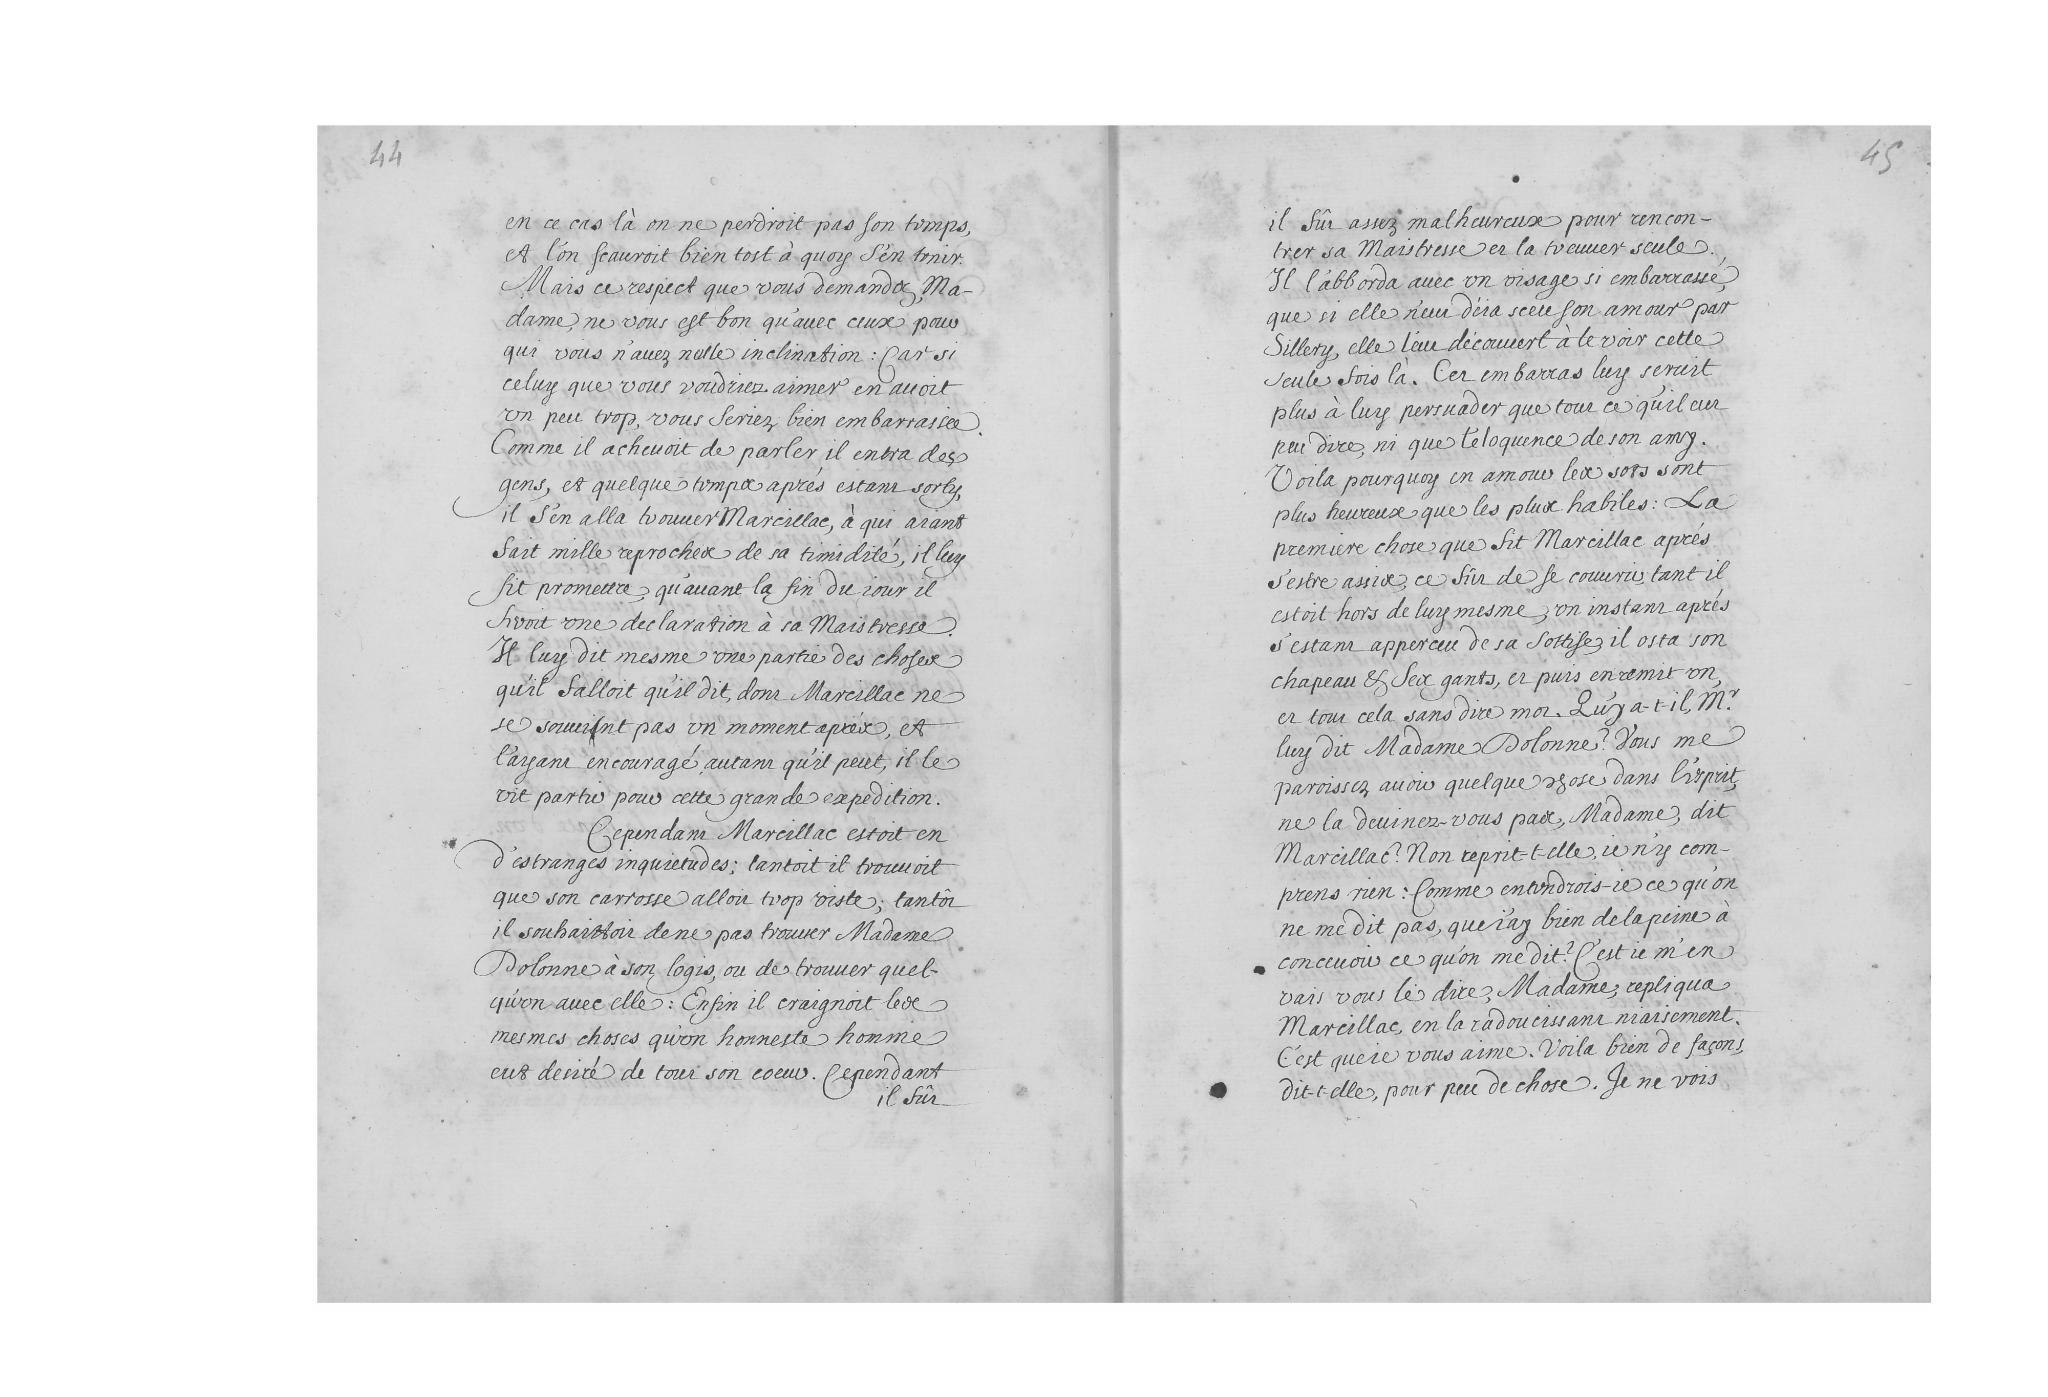 44
en ce cas là on ne perdroit pas son temps,
et l'on sçauroit bien tost à quoy s'en tenir.
Mais ce respect que vous demandez, Ma-
dame, ne vous est bon qu'avec ceux pour
qui vous n'auez nulle inclination : Car si
celuy que vous voudriez aimer en auoit
vn peu trop, vous seriez bien embarrassée.
Comme il acheuoit de parler, il entra des
gens, et quelque temps aprés estant sorty,
il s'en alla trouuer Marcillac, à qui aiant
fait mille reproches de sa timidité, il luy
fit promettre, qu'auant la fin du iour il
feroit vne declaration à sa Maistresse.
Il luy dit mesme vne partie des choses
qu'il falloit qu'il dit, dont Marcillac ne
se souuint pas vn moment aprés, et
l'ayant encouragé autant qu'il peut, il le
vit partir pour cette grande expedition.
Cependant Marcillac estoit en
d'estranges inquietudes ; tantoit il trouuoit
que son carrosse alloit trop viste ; tantôt
il souhaittoit de ne pas trouuer Madame
Dolonne à son logis, ou de trouuer quel-
qu'vn auec elle : Enfin il craignoit les
mesmes choses qu'vn honneste homme
eut desiré de tout son coeur. Cependant
il fût
45
il fût assez malheureux pour rencon-
trer sa Maistresse et la treuuer seule.
Il l'abborda auec vn visage si embarrassé,
que si elle n'eut déia sceu son amour par
Sillery, elle l'eut découuert à le voir cette
seule fois là. Cet embarras luy seruit
plus à luy persuader que tout ce qu'il eut
peu dire, ni que l'eloquence de son amy.
Voila pourquoy en amour les sots sont
plus heureux que les plus habiles : La
premiere chose que fit Marcillac aprés
s'estre assis, ce fût de se couurir, tant il
estoit hors de luy mesme, vn instant aprés
s'estant apperceu de sa sottise, il osta son
chapeau & ses gants, et puis en remit vn,
et tout cela sans dire mot. Qu'y a-t-il, Mr.
luy dit Madame Dolonne ? Vous me
paroissez auoir quelque chose dans l'esprit,
ne la deuinez-vous pas, Madame, dit
Marcillac ? Non reprit-t-elle, ie n'y com-
prens rien : Comme entendrois-ie ce qu'on
ne me dit pas, que i'ay bien de la peine à
conceuoir ce qu'on me dit ? C'est ie m'en
vais vous le dire, Madame, repliqua
Marcillac, en la radoucissant niaisement.
C'est que ie vous aime. Voila bien de façons,
dit-t-elle, pour peu de chose. Je ne vois